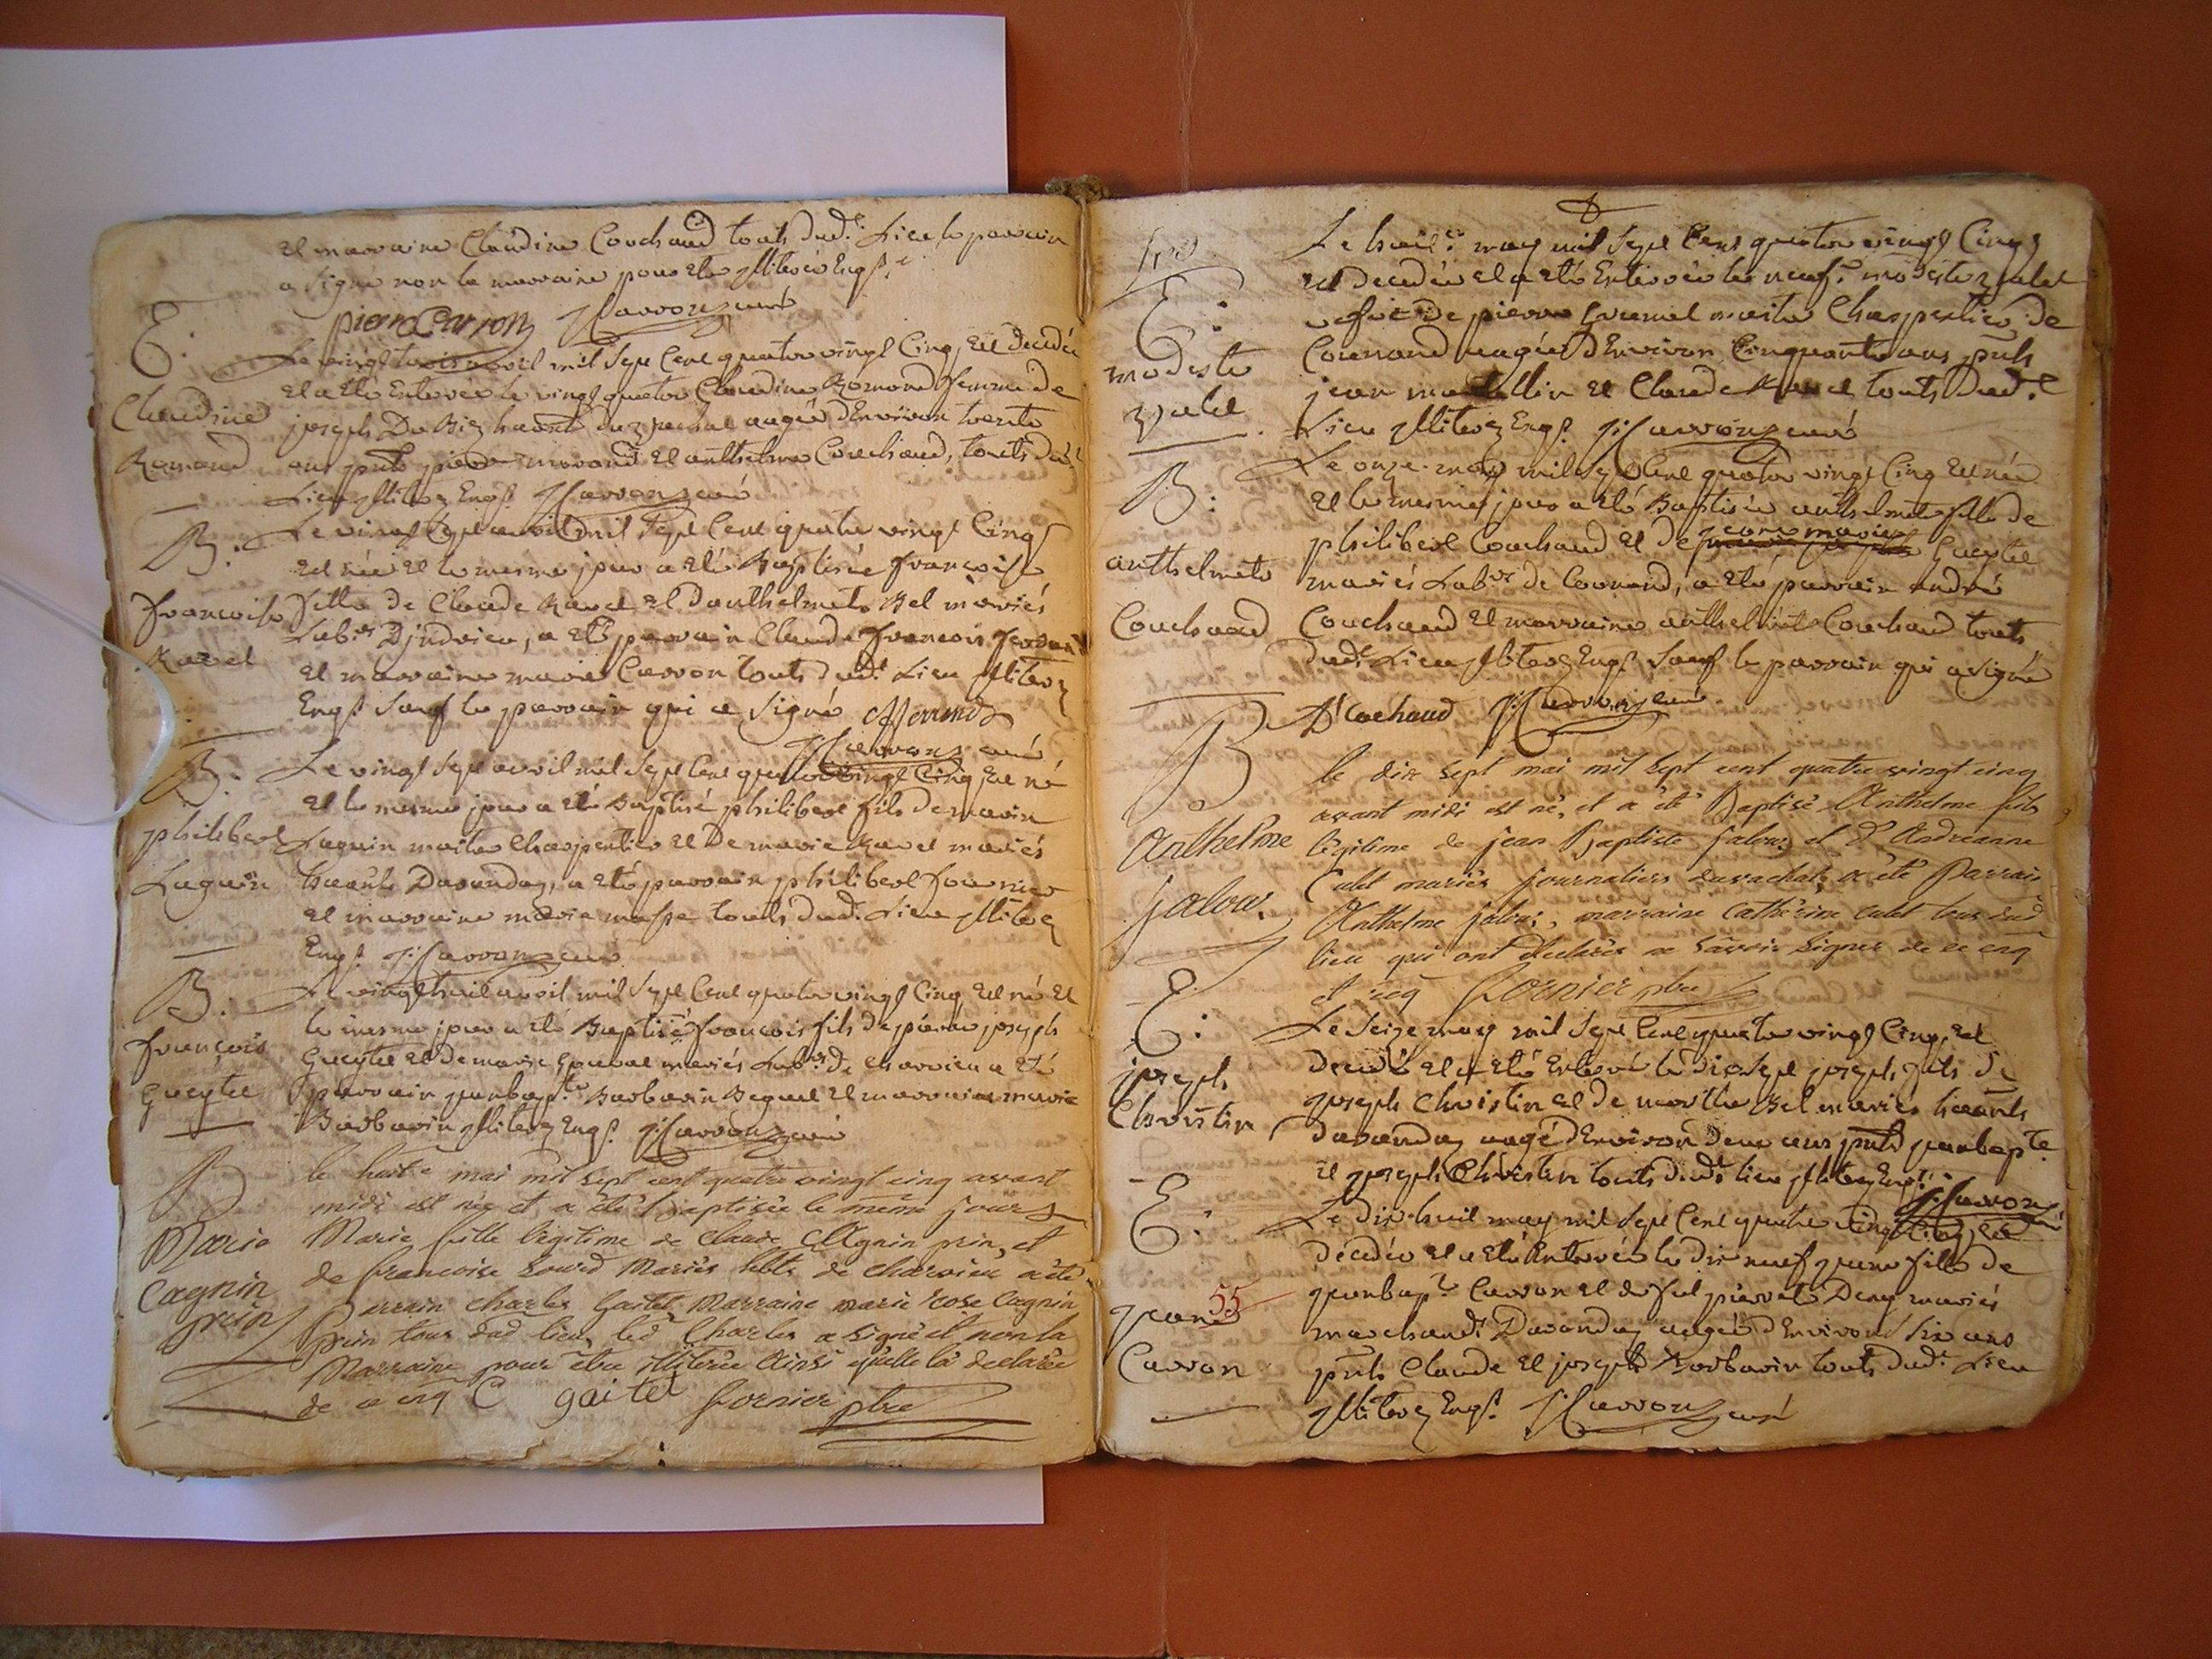 et marraine Claudine Couchaud touts dud.t Lieu le parrain
a signé non la marraine pour etre illiterée Enq.e
pierre Carron J Carron curé
E:
Claudine
Romand
Le vingt trois avril mil sept Cent quatre vingt Cinq est decedée
et a eté Enterrée le vingt quatre Claudine Romand femme de
joseph Du agée d'Environ trente
ans pnts pierre morand et anthelme Couchaud, touts dud.t
Lieu illiterez Enq.s J Carron curé
B:
françoise
Ravet
Le vingt sept avril mil sept Cent quatre vingt Cinq
est née et le mesme jour a eté Baptisée françoise
fille de Claude Ravet et d'anthelmete Bel mariés
Lab.rs D'judrieu, a eté parrain Claude françois
et marraine marie Carron touts dud.t Lieu illiterez
Enq.s sauf le parrain qui a signé
J Carron curé
B:
philibert
Laguin
Le vingt sept avril mil sept Cent quatre vingt Cinq est né
et le mesme jour a eté Baptisé philibert fils de marin
Laguin maitre Charpentier et De marie Ravet mariés
habnts Davanday, a eté parrain philibert fournier
et marraine marie touts dud.t Lieu illiterez
Enq.s J Carron curé
B:
françois
Gueytte
Le vingthuit avril mil sept Cent quatre vingt Cinq est né et
le mesme jour a eté Baptisé françois fils de pierre joseph
Gueytte et De marie mariés Lab.rs de Charvieu a eté
parrain jeanbap.te Barbarin et marraine marie
Barbarin illiterez Enq.s J Carron curé
B
Marie
Cagnin
prin
le huit.e mai mil sept cent quatre vingt cinq avant
midi est née et a été Baptisée le même jour
Marie fille légitime de Claude Cagnin prin, et
de francoise Mariés hbts de charvieu a été
Parrain charles Gaitet Marraine marie rose Cagnin
Prin tous dud lieu, led.t Charles a signé et non la
Marraine pour être illitérée Ainsi quelle l'a declarée
de ce enq C gaitet fornier ptre
E:
modeste
Le huit.e may mil sept Cent quatre vingt Cinq
est decedée et a eté Enterrée le neuf.e modeste
vefve de pierre maitre Charpentier de
Connand aagée d'Environ Cinquante ans pnts
jean et Claude Ravet touts Dud.t
Lieu illiterez Enq.s J Carron curé
B:
anthelmete
Couchaud
Le onze may mil sept Cent quatre vingt Cinq est née
et le mesme jour a eté Baptisée anthelmete fille de
philibert Couchaud et de jeane marie Gueytte
mariés Lab.rs de Connand, a eté parrain andré
Couchaud et marraine anthelmete Couchaud touts
dud.t Lieu illiterez Enq.s sauf le parrain qui a signé
D Cochaud J Carron curé
B
Anthelme
jalou
le dix sept mai mil sept cent quatre vingt cinq
avant midi est né, et a été Baptisé Anthelme fils
légitime de jean Baptiste jalou, et d'Andréanne
Culet mariés journaliers a été Parrain
Anthelme jalou, marraine Catherine culet tous dud
lieu qui ont declarés ne savoir signer de ce enq
et req fornier ptre
E:
joseph
Christin
Le seize may mil sept Cent quatre vingt Cinq, est
decedé et a eté Enterré le dixsept joseph fils de
joseph Christin et de marthe Bel mariés habnts
Davanday aagé d'Environ deux ans pnts jeanbapte
et joseph Christin touts dud.t lieu illiterez Enq.s
J Carron curé
E:
jeane
Carron
55
Le dixhuit may mil sept Cent quatre vingt Cinq, est
décédée et a eté Enterrée le dix neuf jeane fille de
jeanbap.te Carron et de fut pierrete Deny mariés
marchands Davanday aagée d'Environ six ans
pnts Claude et joseph Barbarin touts dud.t Lieu
illiterez Enq.s J Carron curé